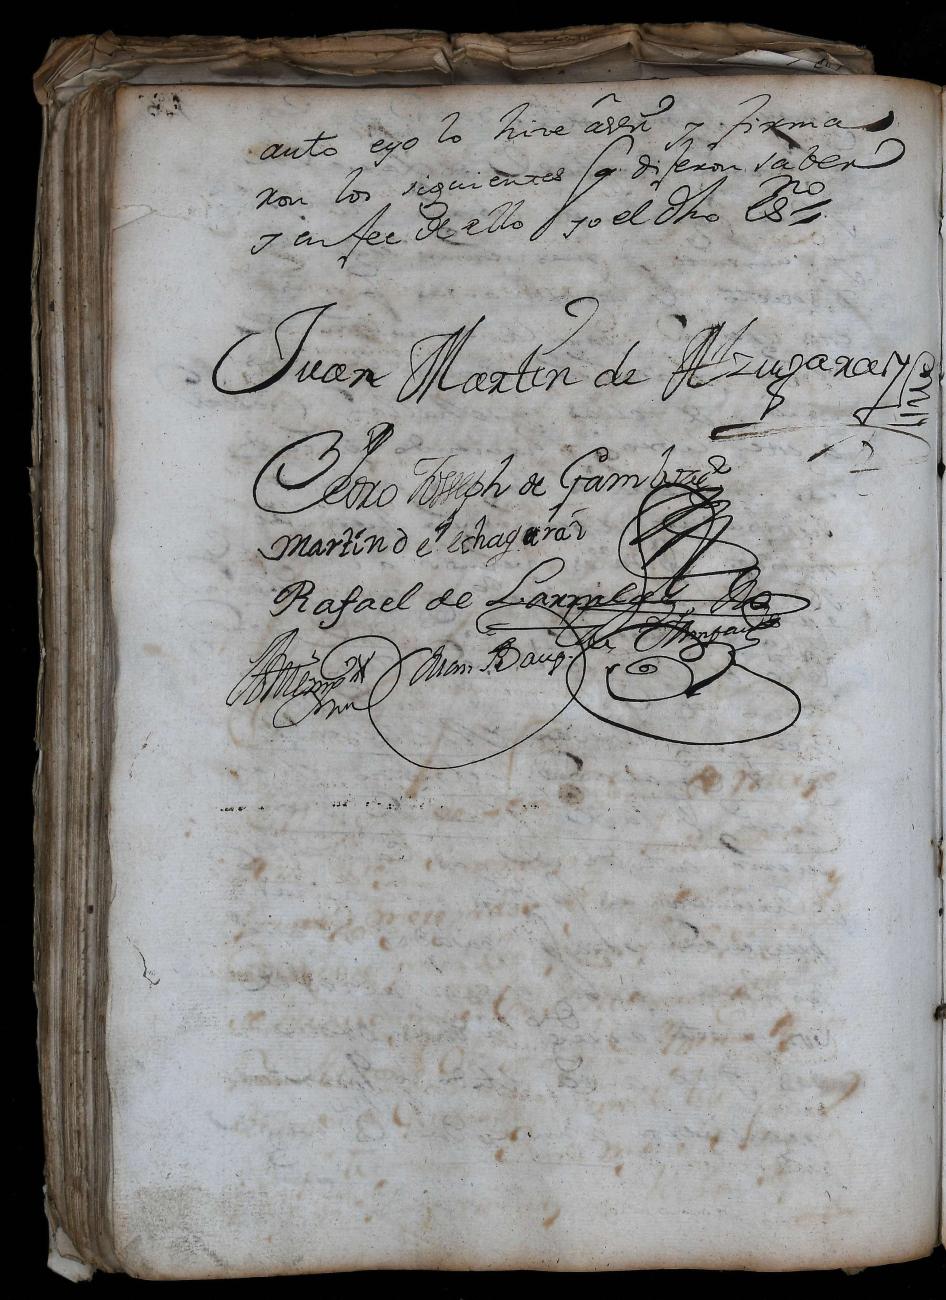 auto e yo lo hice assñ y firma
ron los siguientes q dijeron saber
y en fee de ello yo el dho Essno
Juan Martin de Azugarai
Pedro Joseph de Gamboa
Martin de echagarai
Rafael de Larrmendi
Ante mi Juan Bauptta